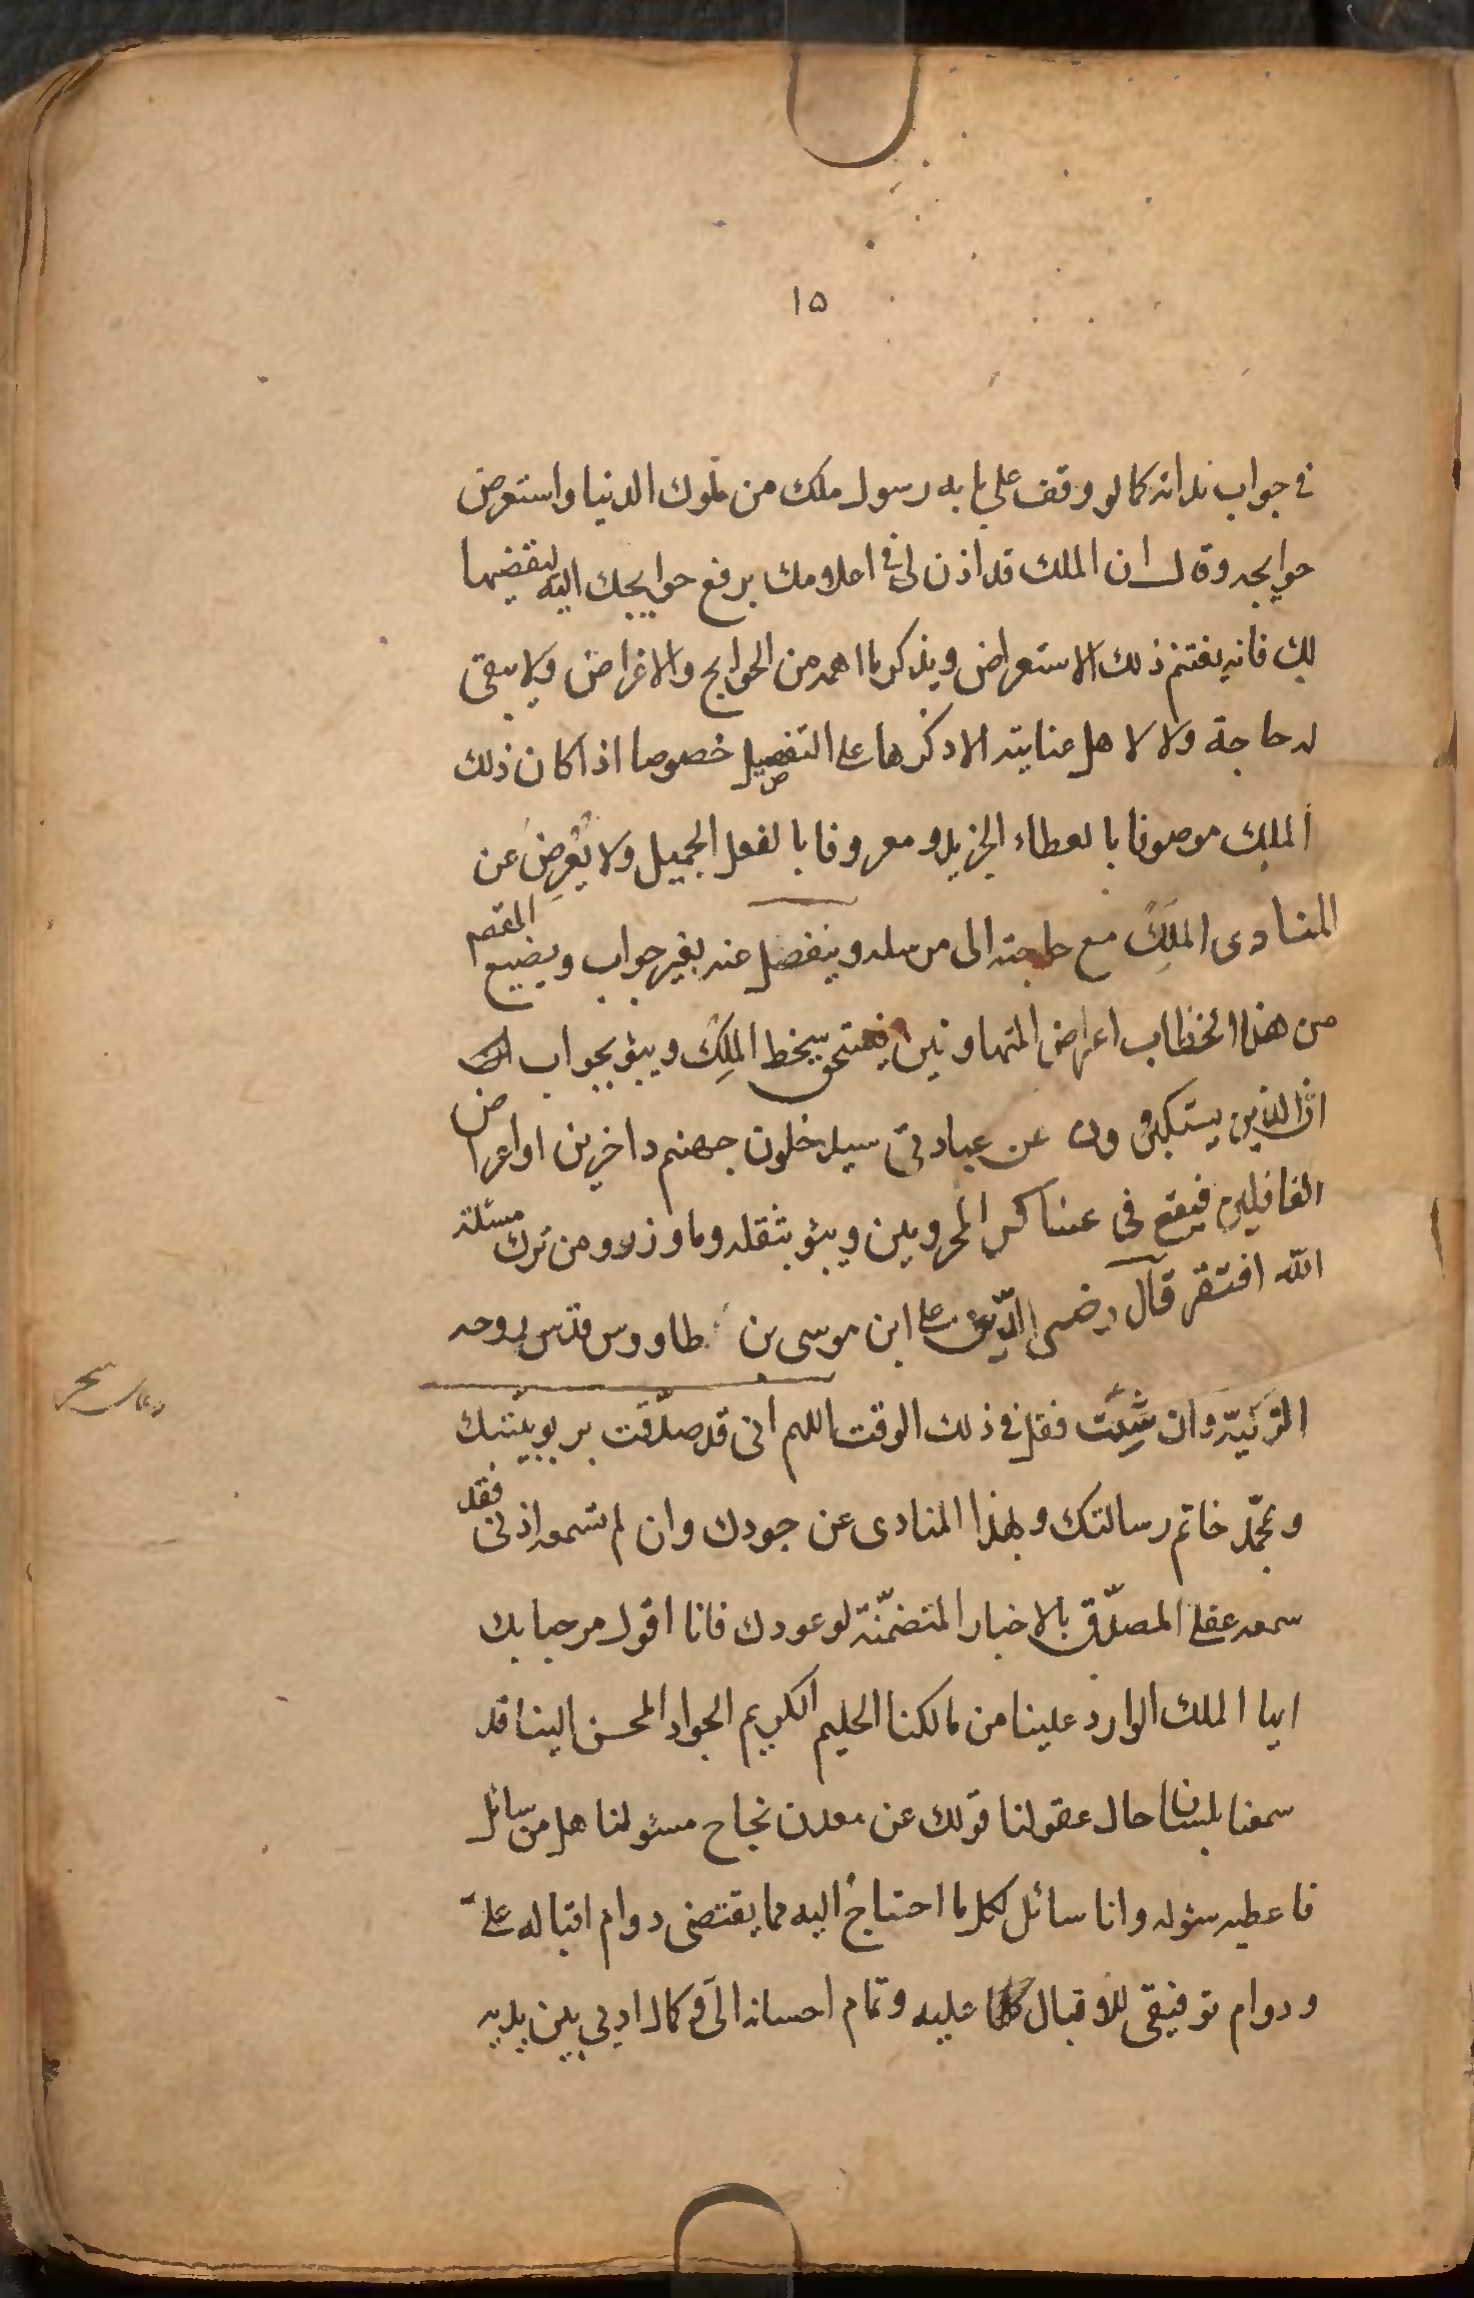 ١٥
فى جواب ندائه كما لو وقف على بابه رسول ملك من ملوك الدنيا واستعرض
حوايجه وقال ان الملك قد اذن لى فى اعلامك برفع حوايجك اليه ليقضيها
لك فانه يغتنم ذلك الاستعراض ويذكر ما اهمه من الحوايج والاغراض ولا يبقى
له حاجة ولا لاهل عنايته الا ذكرها على التفصيل خصوصا اذا كان ذلك
الملك موصوفا بالعطاء الجزيل ومعروفا بالفعل الجميل ولا يُعْرِضَ عن
المنادى الملَك مع حاجته الى مرسله وينفصل عنه بغير جواب ويضيع
من هذا الخطاب اعراض المتهاونين فيستحق سخط الملِك ويبؤ بجواب
ان الذين يستكبرون عن عبادتى سيدخلون جهنم داخرين او اعراض
الغافلين فيقع فى عساكر المحرومين ويبؤ بثقله وما وزر ومن ترك مسئلة
الله افتقر قال رضى الدين على ابن موسى بن طاووس قدّس روحه
دعاى سحر
الزكيّة وان شِئت فقل فى ذلك الوقت اللهم انى قد صدّقت بربوبيّتك
وبمحمّد خاتم رسالتك وبهذا المنادى عن جودك وان لم تسمعه اذنى فقد
سمعه عقلى المصدّق بالاخبار المتضمّنة لوعودك فانا اقول مرحبا بك
ايها الملك الوارد علينا من مالكنا الحليم الكريم الجواد المحسن الينا قد
سمعنا بلسان حال عقولنا قولك عن معدن نجاح مسئولنا هل من سائل
فاعطيه سؤله وانا سائل لكل ما احتاجُ اليه مما يقتضى دوام اقباله علىّ
ودوام توفيقى للاقبال عليه وتمام احسانه الىّ وكمال ادبى بين يديه